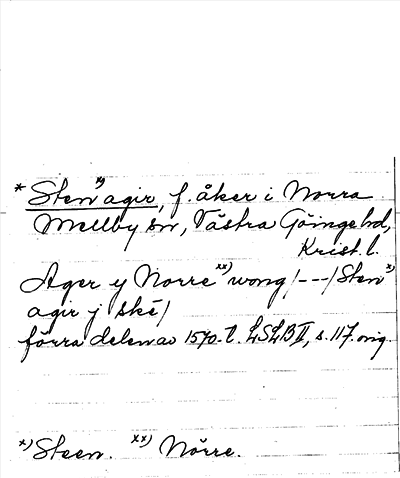 * Sten x) agir, f. åker i Norra
Mellby sn, Västra Göingehd,
Krist. l.
Ager y Norre xx) wong /---/ Sten x)
agir j ské/
förra delen av 1570-t. LSLB II, s. 117. orig.
x) Steen. xx) Nörre.